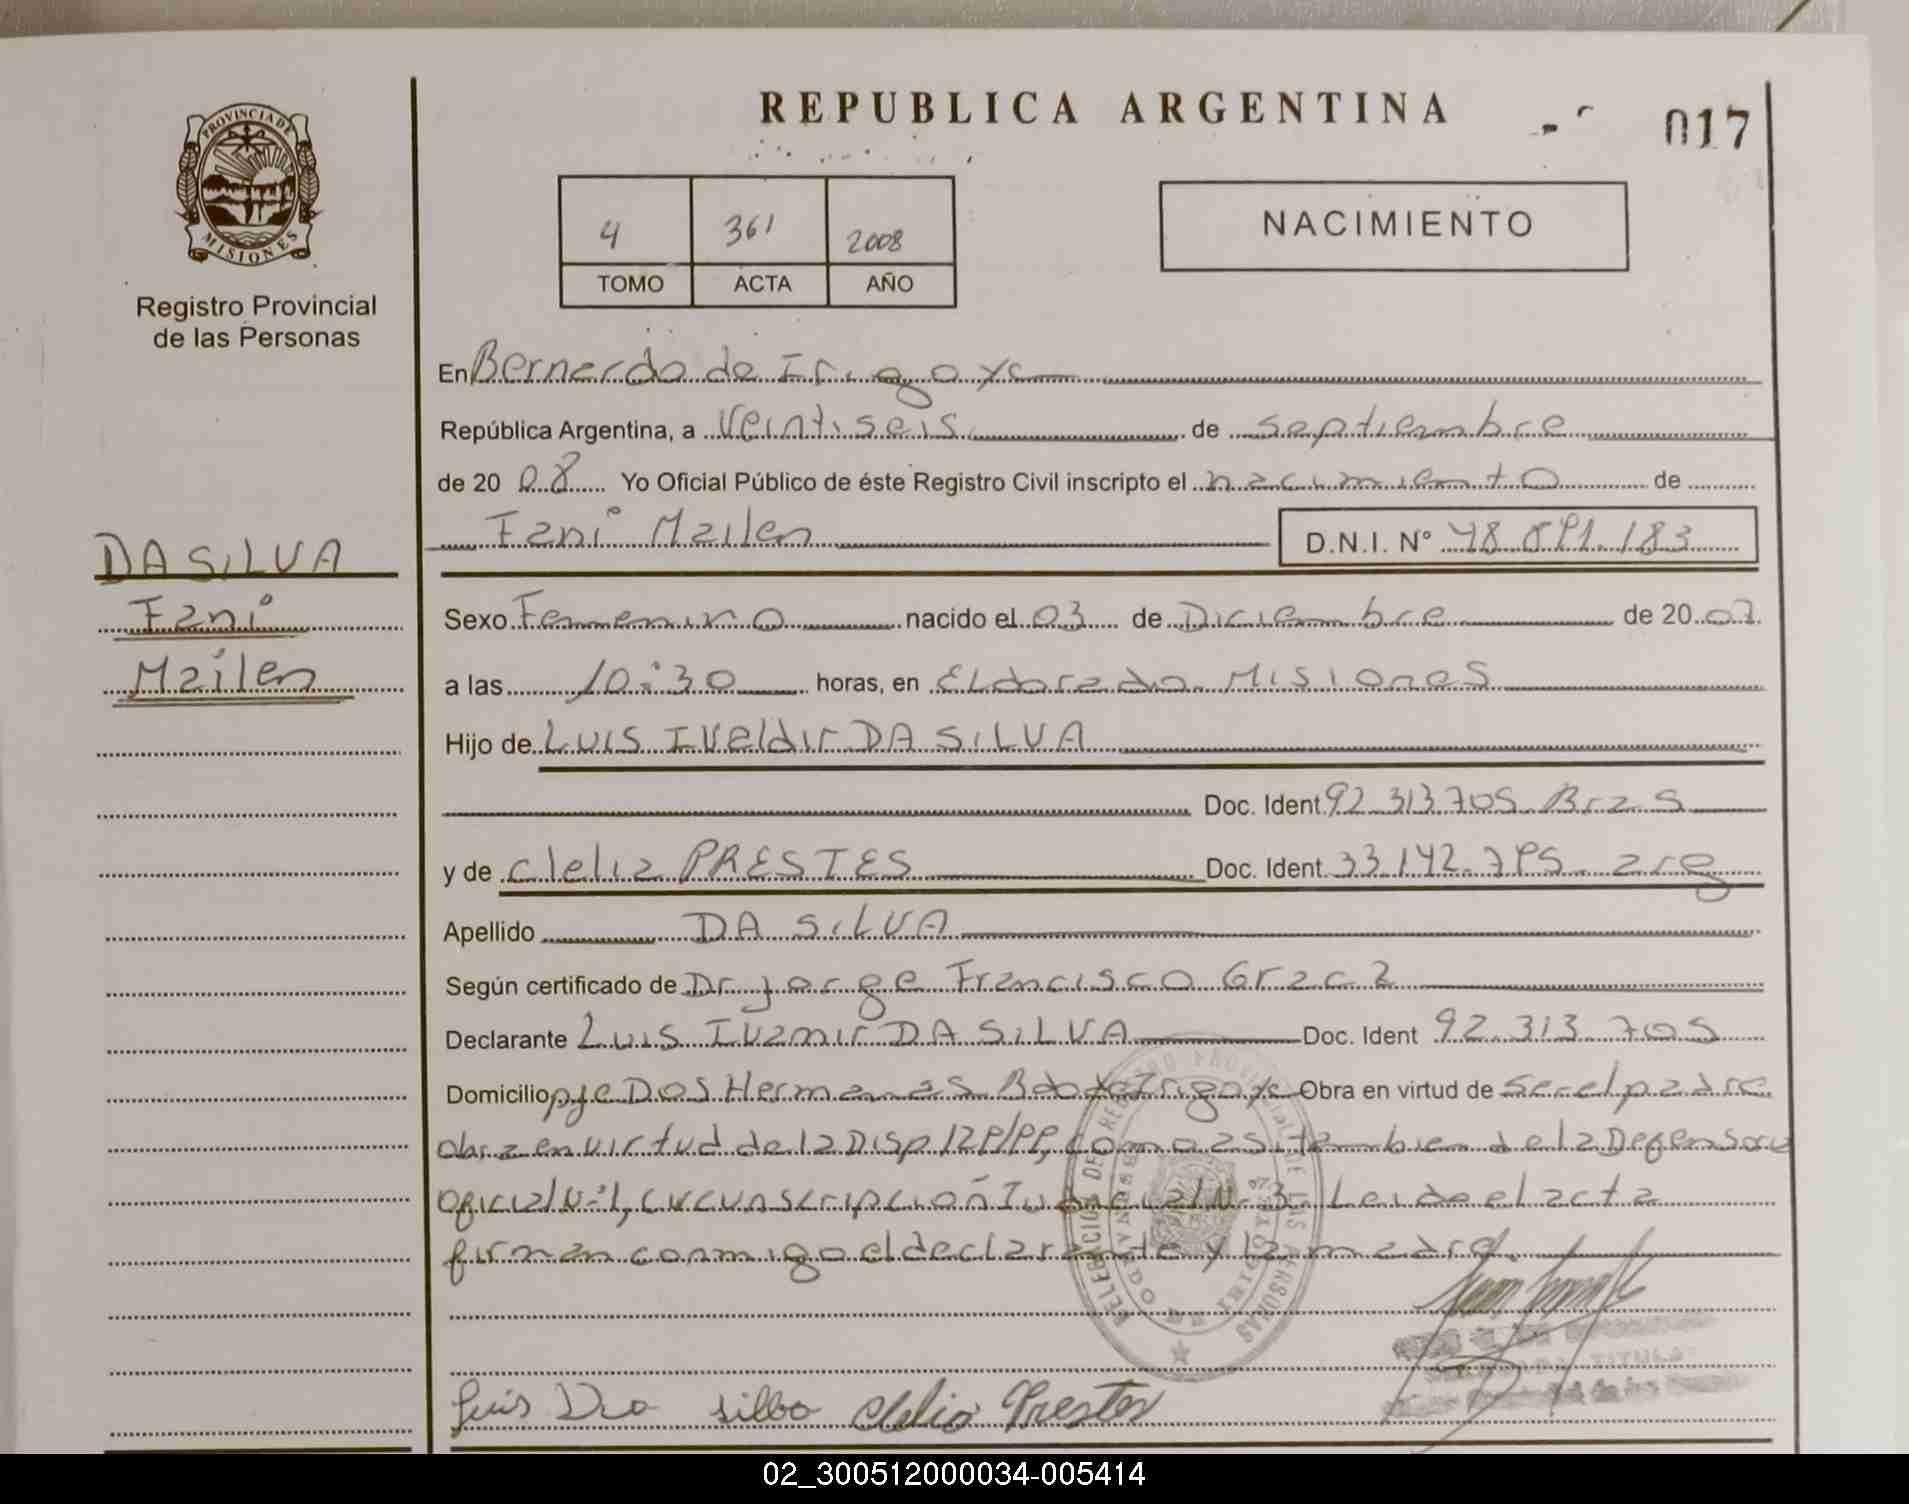 REPUBLICA ARGENTINA
017
PROVINCIA DE
MISIONES
Registro Provincial
de las Personas
4 361 2008
TOMO ACTA AÑO
NACIMIENTO
En Bernardo de Irigoye
República Argentina, a veintiseis de septiembre
de 20 08 Yo Oficial Público de éste Registro Civil inscripto el nacimiento de
Fani Mailen D.N.I. Nº 48.091.183
DA SILVA
Fani
Mailen
Sexo Femenino nacido el 03 de Diciembre de 20 07
a las 10:30 horas, en Eldorado Misiones
Hijo de Luis Iveldir DA SILVA
Doc. Ident. 92.313.705 Bras
y de Clelia PRESTES Doc. Ident. 33.142.795 arg
Apellido DA SILVA
Según certificado de Dr Jorge Francisco Graca
Declarante Luis Ivamir DA SILVA Doc. Ident 92.313.705
Domicilio pje Dos Hermanas Bdo de Irigoye Obra en virtud de ser el padre
obra en virtud de la Disp como asi tambien de la Defensoria
oficial Nº1, circunscripción Judicial N. 3- Leida el acta
firman conmigo el declarante y la madre.
REGISTRO PROVINCIAL DE LAS PERSONAS
TITULAR
Luis Da silba Clelia Prestes
02_300512000034-005414